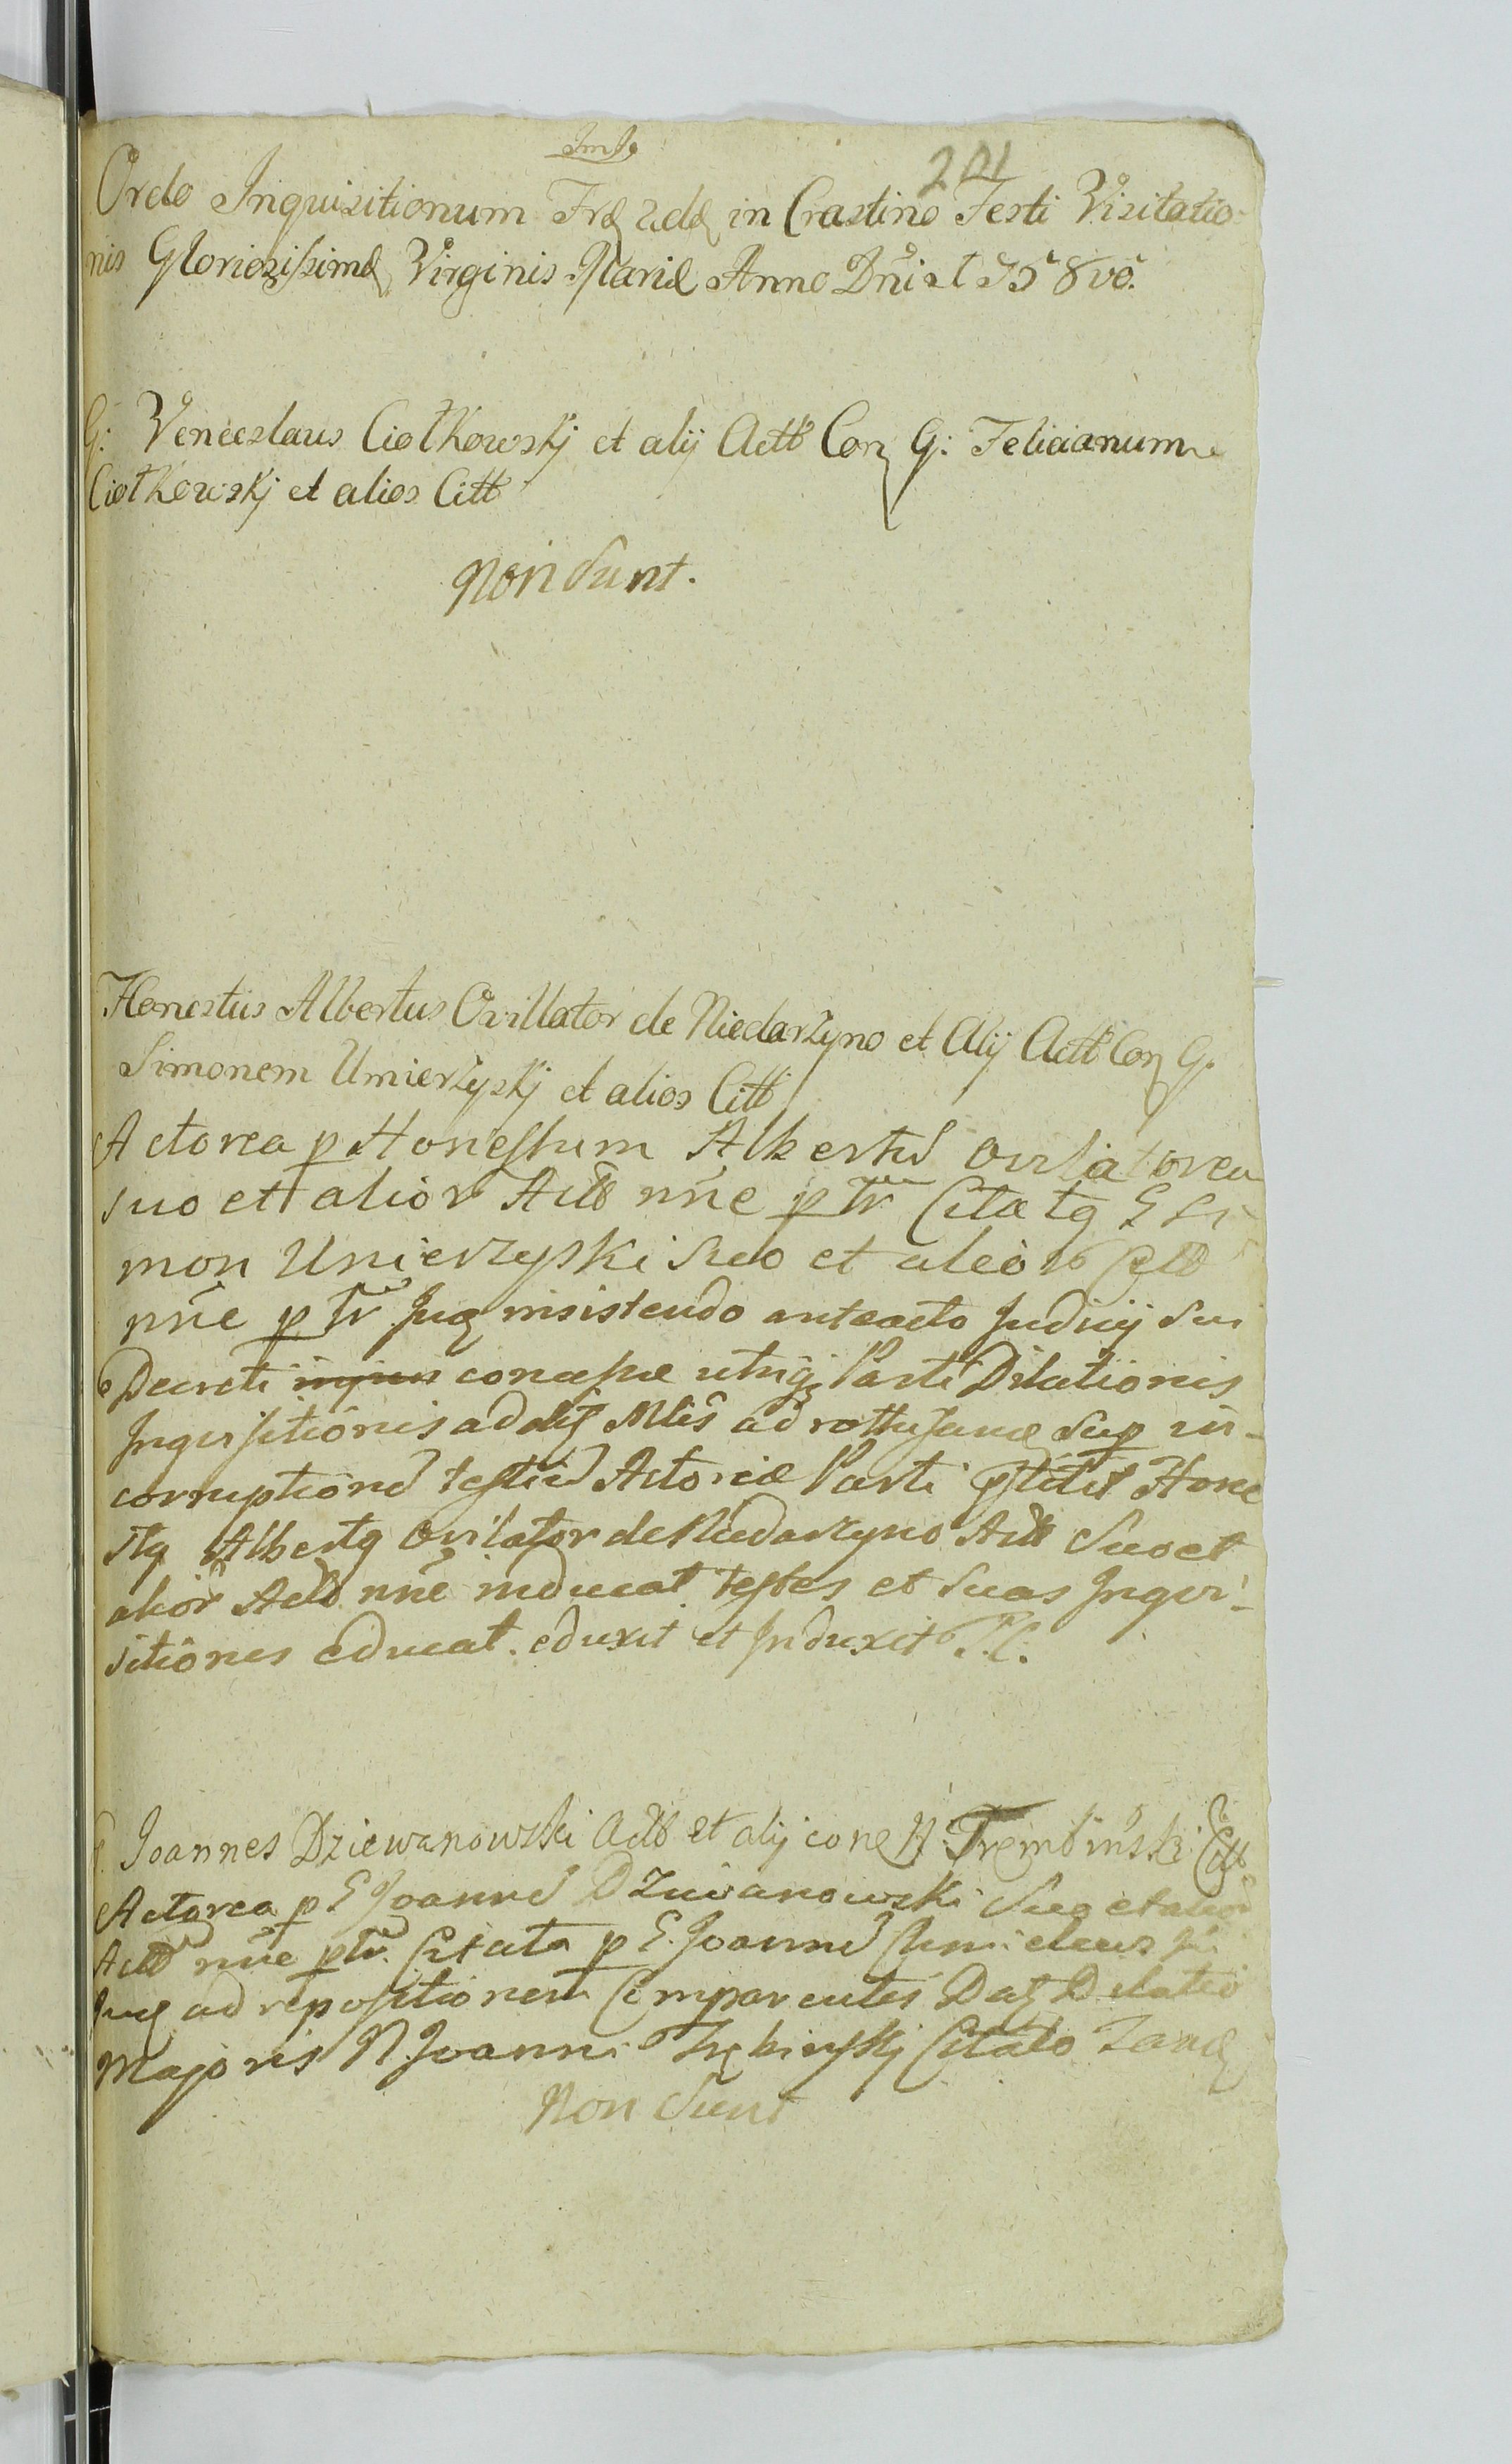 201
Ordo Inquisitionum in Crastino Festi Visitatio-
nis Gloriosissimæ Virginis Mariæ Anno Dñi 1758vo.
G: Venceslaus Ciołkowskj et alij Actt Con G: Felicianum
Ciołkowskj et alios Citt
Non Sunt.
Honestus Albertus Ovillator de Niedarzyno et Alij Actt Con G.
Simonem Umierzyskj et alios Citt
Actorea p Honestum Albertu Ovilatorem
suo et alior Actt nñe p tr Citatq G Si
mon Unierzyski Suo et alior Citt
nñe p tr Juq insistendo anteacto Judicij Sui
Decreti concessæ utriq Parti Dilationis
Inquisitionis ad Sup in-
corruptione testiu Actoreæ Parti Hone
stq Albertq Ovilator de Niedarzyno Actt Suo et
alior Actt nñe inducat testes et Suas Inqui-
sitiones educat. eduxit et Induxit P.C.
G. Joannes Dziewanowski Actt et alij con N: Trembinski Citt
Actorea p G Joanne Dziewanowski Suo et alior
Actt nñe p tr. Citata p G. Joanne
ad repositionem Comparentes Dilatio
Majoris N Joanni Trębinskj Citato
Non Sunt